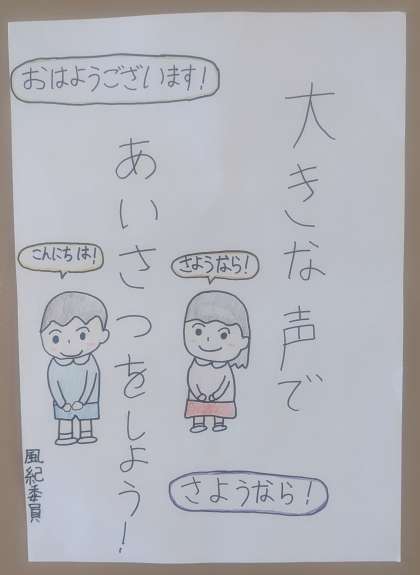 おはようございます!
大きな声で
あいさつをしよう!
こんにちは!
さようなら!
さようなら!
風紀委員